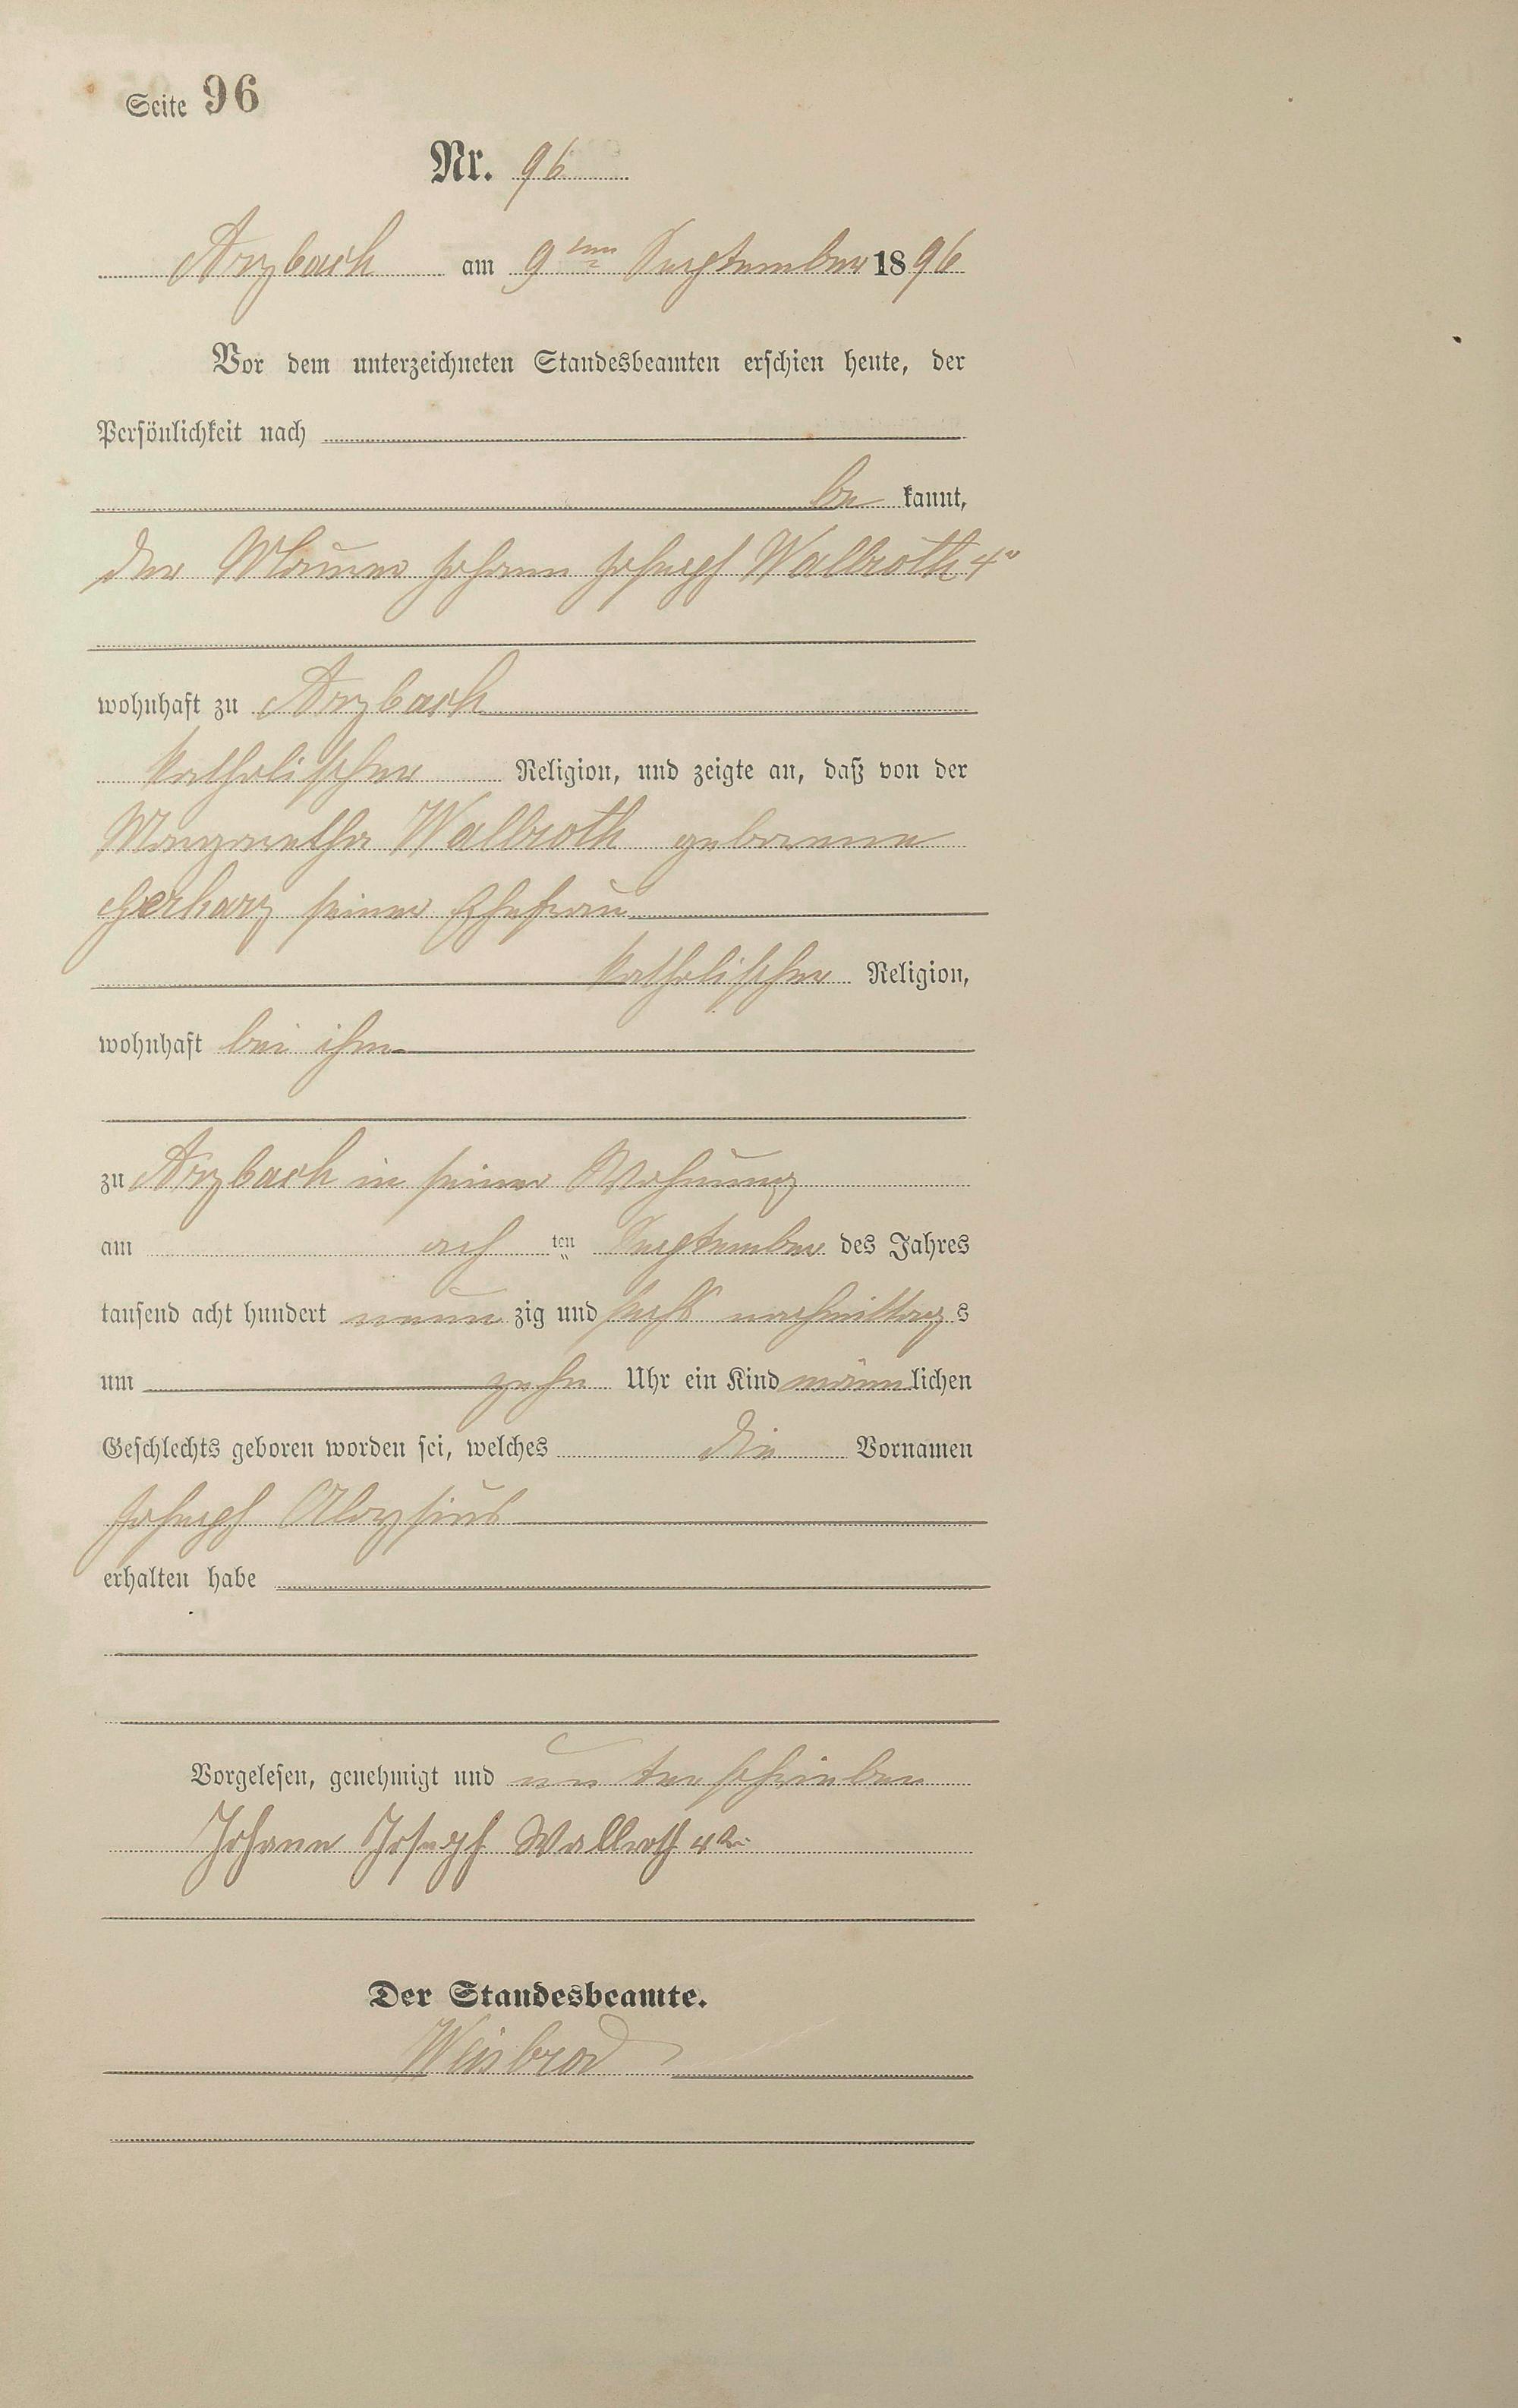 Seite 96
Nr. 96
Arzbach am 9ten September 1896
Vor dem unterzeichneten Standesbeamten erschien heute, der
Persönlichkeit nach
be kannt,
der Maurer Johann Joseph Wallroth 4r
wohnhaft zu Arzbach
katholischer Religion, und zeigte an, daß von der
Margaretha Wallroth geborene
Gerharz seiner Ehefrau
katholischer Religion,
wohnhaft bei ihm
zu Arzbach in seiner Wohnung
am ach ten September des Jahres
tausend acht hundert neun zig und sechs nachmittag s
um zehn Uhr ein Kind männ lichen
Geschlechts geboren worden sei, welches die Vornamen
Joseph Aloysius
erhalten habe
Vorgelesen, genehmigt und unterschrieben
Johann Joseph Wallroth 4ter
Der Standesbeamte.
Weisbrod